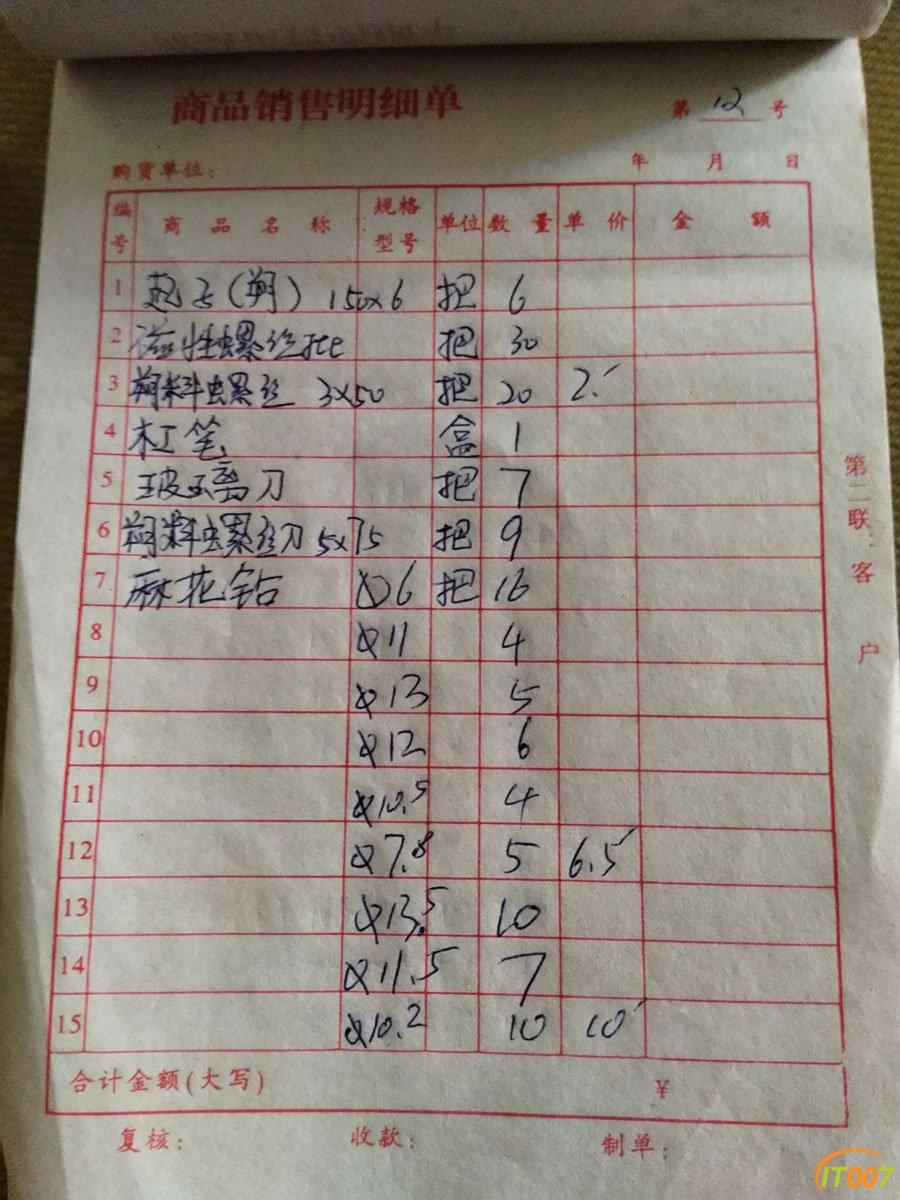 商品销售明细单
第 12 号
购货单位: 年 月 日
编号 商品名称 规格型号 单位 数量 单价 金额
1 起子(塑) 150×6 把 6
2 磁性螺丝批 把 30
3 塑料螺丝 3×50 把 20 2.
4 木工笔 盒 1
5 玻璃刀 把 7
6 塑料螺丝刀 5×75 把 9
7 麻花钻 Φ6 把 16
8 Φ11 4
9 Φ13 5
10 Φ12 6
11 Φ10.5 4
12 Φ7.8 5 6.5
13 Φ13.5 10
14 Φ11.5 7
15 Φ10.2 10 10
合计金额(大写) ¥
复核: 收款: 制单:
第二联:客户
IT007